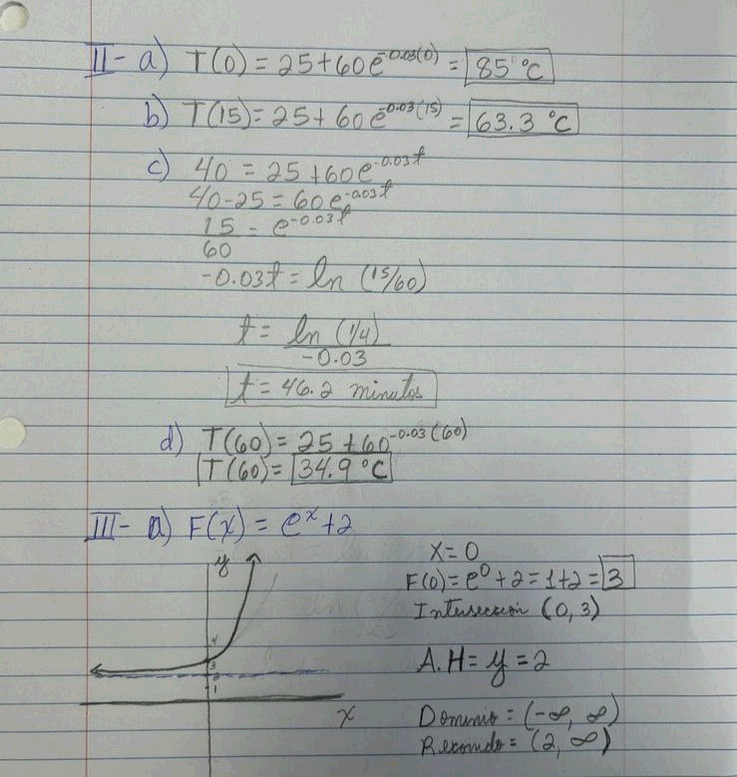 II- a) T(0) = 25+60e^-0.03(0) = 85 °C
b) T(15) = 25+ 60e^-0.03(15) = 63.3 °C
c) 40 = 25+60e^-0.03t
40-25 = 60e^-0.03t
15/60 = e^-0.03t
-0.03t = ln (15/60)
t = ln (1/4)/-0.03
t = 46.2 minutos
d) T(60) = 25 +60^-0.03(60)
T(60) = 34.9 °C
III- a) F(x) = e^x+2
y
4
3
2
1
x
X=0
F(0) = e^0 + 2 = 1+2 = 3
Intersección (0,3)
A.H = y = 2
Dominio = (-∞, ∞)
Recorrido = (2, ∞)